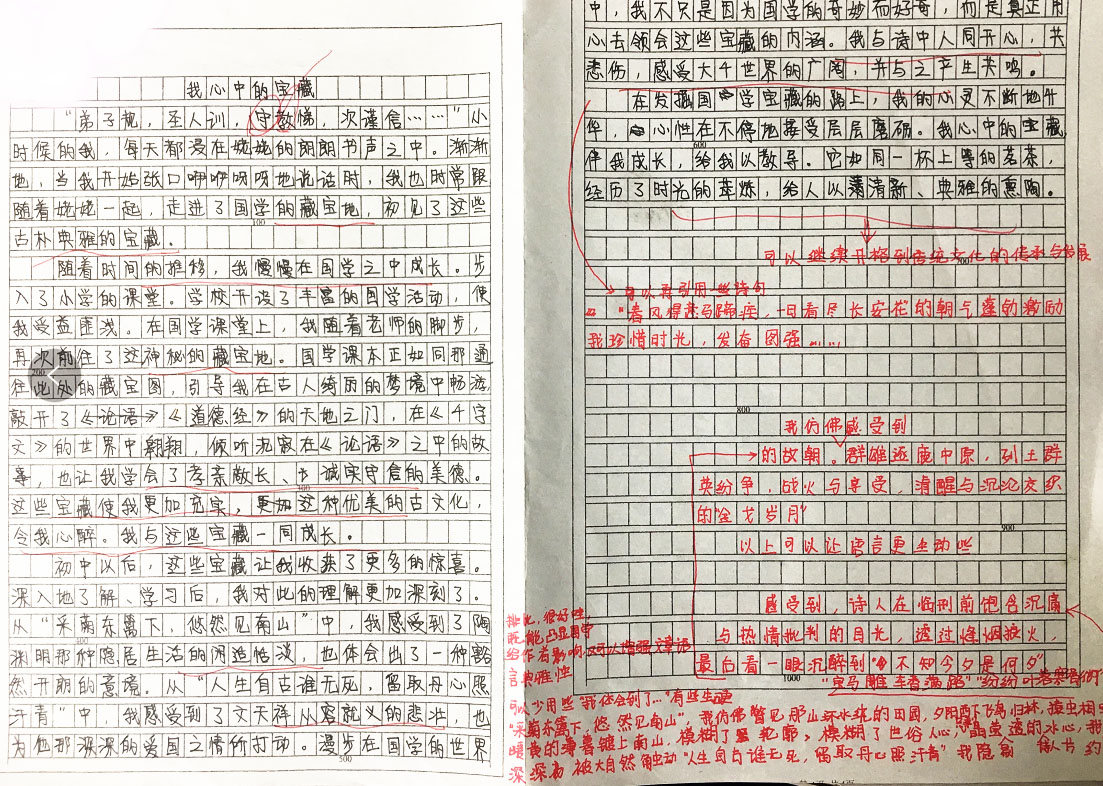 我心中的宝藏
“弟子规，圣人训，守孝悌，次谨信……”小
时候的我，每天都浸在姥姥的朗朗书声之中。渐渐
地，当我开始张口咿咿呀呀地说话时，我也时常跟
随着姥姥一起，走进了国学的藏宝地，初见了这些
100
古朴典雅的宝藏。
随着时间的推移，我慢慢在国学之中成长。步
入了小学的课堂。学校开设了丰富的国学活动，使
我受益匪浅。在国学课堂上，我随着老师的脚步，
再次前往了这神秘的藏宝地。国学课本正如同那通
200
往此处的藏宝图，引导我在古人绮丽的梦境中畅游，
敲开了《论语》《道德经》的天地之门，在《千字
文》的世界中翱翔，倾听沉寂在《论语》之中的故
事，也让我学会了孝亲敬长、诚实守信的美德。
这些宝藏使我更加充实，更加这种优美的古文化，
令我心醉。我与这些宝藏一同成长。
初中以后，这些宝藏让我收获了更多的惊喜。
深入地了解、学习后，我对此的理解更加深刻了。
从“采菊东篱下，悠然见南山”中，我感受到了陶
渊明那种隐居生活的闲适恬淡，也体会出了一种豁
然开朗的意境。从“人生自古谁无死，留取丹心照
汗青”中，我感受到了文天祥从容就义的悲壮，也
为他那深深的爱国之情所打动。漫步在国学的世界
500
中，我不只是因为国学的奇妙而好奇，而是真正用
心去领会这些宝藏的内涵。我与诗中人同开心，共
悲伤，感受大千世界的广阔，并与之产生共鸣。
在发掘国学宝藏的路上，我的心灵不断地升
华，心性在不停地接受层层磨砺。我心中的宝藏
600
伴我成长，给我以教导。它如同一杯上等的茗茶，
经历了时光的萃炼，给人以清新、典雅的熏陶。
可以继续升格到传统文化的传承与发展
700
可以再引用一些诗句
“春风得意马蹄疾，一日看尽长安花”的朝气蓬勃激励
我珍惜时光，发奋图强……
800
我仿佛感受到
的故朝。群雄逐鹿中原，列土群
英纷争，战火与享受，清醒与沉沦交织
的“金戈岁月”
900
以上可以让语言更生动些
感受到，诗人在临刑前饱含沉痛
与热情批判的目光，透过烽烟疲火，
最后看一眼沉醉到“不知今夕是何夕”
1000
“宝马雕车香满路”
排比，很好哇
既能凸显国学
给作者影响，又可以增强文章语
言典雅性
可以少用些“我体会到了…”有些生硬
“采菊东篱下，悠然见南山”，我仿佛瞥见那山环水绕的田园，夕阳西下飞鸟归林，
的薄暮镀上南山，模糊了轮廓，模糊了世俗人心，晶莹透的冰心，我
深深为被大自然触动“人生自古谁无死，留取丹心照汗青”我隐约